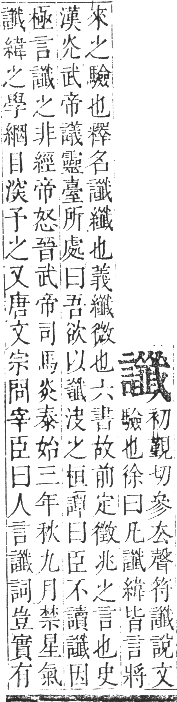 讖
初覲切參厺聲符讖說文
驗也徐曰凡讖緯皆言將
來之驗也釋名讖纖也義纖微也六書故前定徵兆之言也史
漢光武帝議靈臺所處曰吾欲以讖決之桓譚曰臣不讀讖因
極言讖之非經帝怒晉武帝司馬炎泰始三年秋九月禁星氣
讖緯之學綱目深予之又唐文宗問宰臣曰人言讖詞豈實有